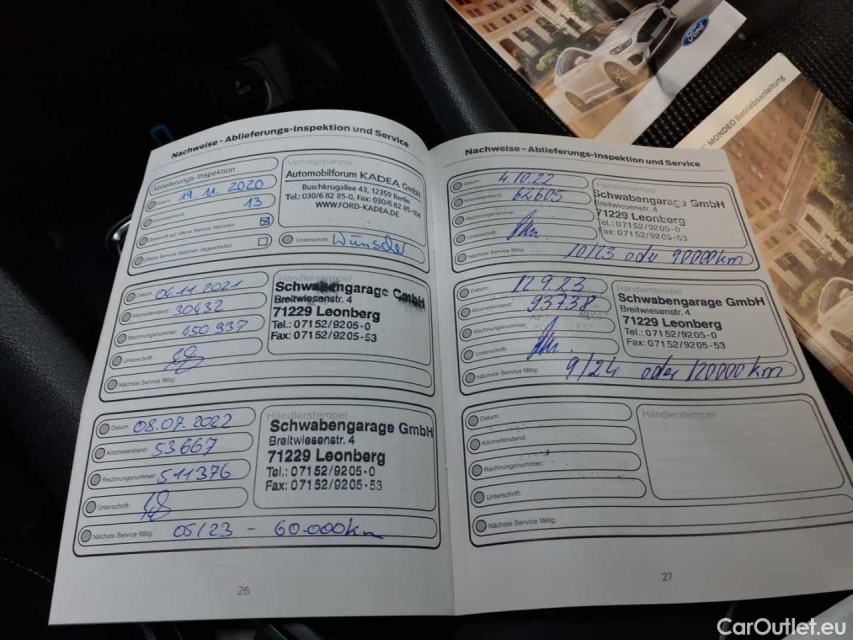 Ford
MONDEO Betriebsanleitung
Nachweise - Ablieferungs-Inspektion und Service
Ablieferungs-Inspektion
Datum: 19.11.2020
13
Vertragspartner
Automobilforum KADEA GmbH
Buschkrugallee 43, 12359 Berlin
Tel.: 030/6 82 85-0, Fax: 030/6 82 85-104
WWW.FORD-KADEA.DE
Unterschrift: Wünsche
Datum: 06.11.2021
Kilometerstand: 30432
Rechnungsnummer: 450 937
Unterschrift:
Nächste Service fällig:
Händlerstempel
Schwabengarage GmbH
Breitwiesenstr. 4
71229 Leonberg
Tel.: 07152/9205-0
Fax: 07152/9205-53
Datum: 08.07.2022
Kilometerstand: 53667
Rechnungsnummer: 511376
Unterschrift:
Nächste Service fällig: 05/23 - 60.000km
Händlerstempel
Schwabengarage GmbH
Breitwiesenstr. 4
71229 Leonberg
Tel.: 07152/9205-0
Fax: 07152/9205-53
26
Nachweise - Ablieferungs-Inspektion und Service
Datum: 4.10.22
Kilometerstand: 62605
Rechnungsnummer:
Unterschrift:
Nächste Service fällig: 10/23 oder 90000km
Händlerstempel
Schwabengarage GmbH
Breitwiesenstr. 4
71229 Leonberg
Tel.: 07152/9205-0
Fax: 07152/9205-53
Datum: 12.9.23
Kilometerstand: 93738
Rechnungsnummer:
Unterschrift:
Nächste Service fällig: 9/24 oder 120000 km
Schwabengarage GmbH
Breitwiesenstr. 4
71229 Leonberg
Tel.: 07152/9205-0
Fax: 07152/9205-53
Datum:
Kilometerstand:
Rechnungsnummer:
Unterschrift:
Nächste Service fällig:
Händlerstempel
27
CarOutlet.eu